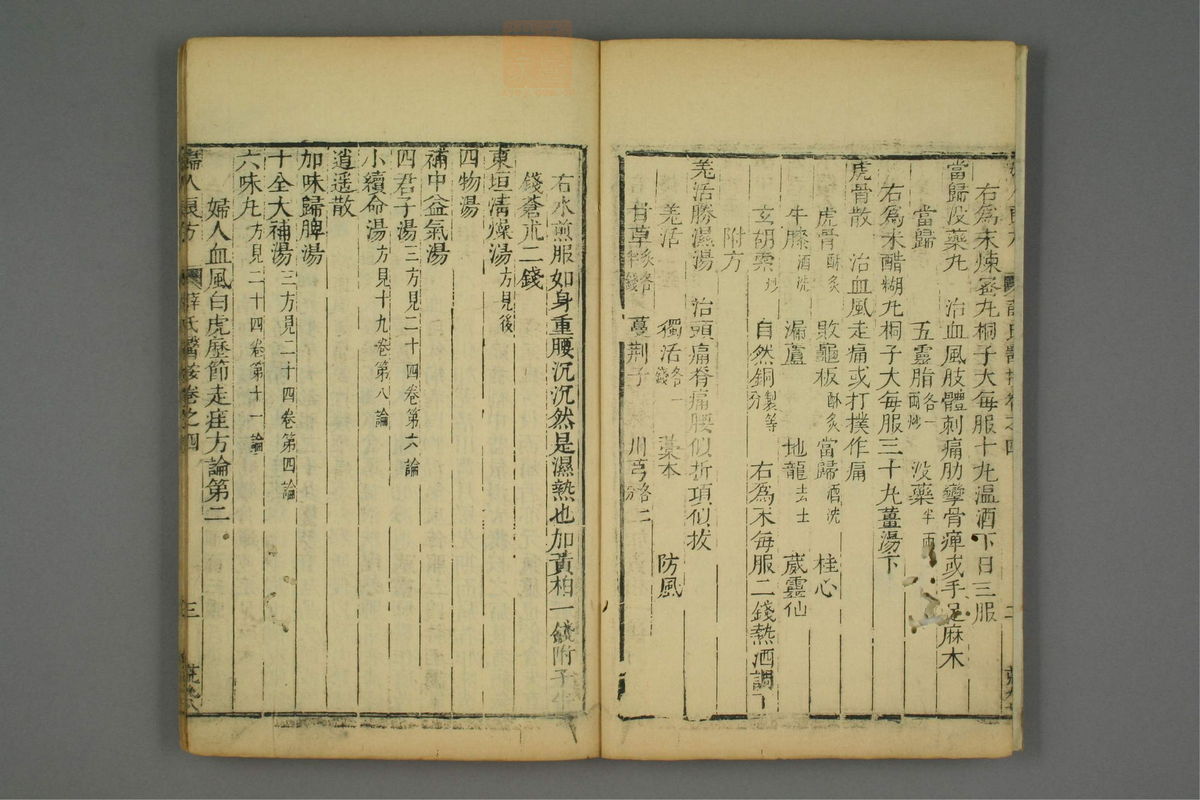 右為末煉蜜丸桐子大每服十丸温酒下日三服
當歸没藥丸 治血風肢體刺痛肋攣骨痺或手足麻木
當歸 五靈脂各一兩炒 没藥半兩
右為末醋糊丸桐子大每服三十丸薑湯下
虎骨散 治血風走痛或打撲作痛
虎骨酥炙 敗龜板酥炙 當歸酒洗 桂心
牛膝酒洗 漏蘆 地龍去土 葳靈仙
玄胡索炒 自然銅製等分 右為末每服二錢熱酒調下
附方
羌活勝濕湯 治頭痛脊痛腰似折項似拔
羌活 獨活各一錢 藁本 防風
甘草炙各半錢 蔓荆子 川芎各二分
右水煎服如身重腰沉沉然是濕熱也加黃栢一錢附子半
錢蒼朮二錢
東垣清燥湯方見後
四物湯
補中益氣湯
四君子湯三方見二十四卷第六論
小續命湯方見十九卷第八論
逍遥散
加味歸脾湯
十全大補湯三方見二十四卷第四論
六味丸方見二十四卷第十一論
婦人血風白虎歷節走疰方論第二
婦人良方 薛氏醫按卷之四 三